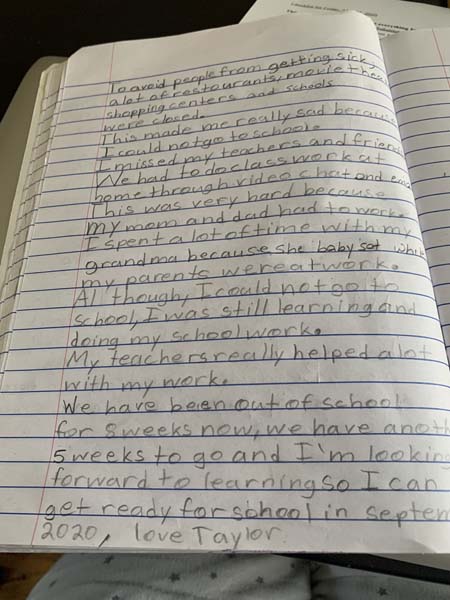 To avoid people from getting sick,
a lot of restourants, movie thea
shopping centers and schools
were closed.
This made me really sad becaus
I could not go to school.
I missed my teachers and friend
We had to do class work at
home through video chat and ema
This was very hard because
my mom and dad had to work.
I spent a lot of time with my
grandma because she baby sat whil
my parents were at work.
Al though, I could not go to
school, I was still learning and
doing my school work.
My teachers really helped a lot
with my work.
We have been out of school
for 8 weeks now, we have anoth
5 weeks to go and I'm looking
forward to learning so I can
get ready for school in septem
2020, love Taylor.